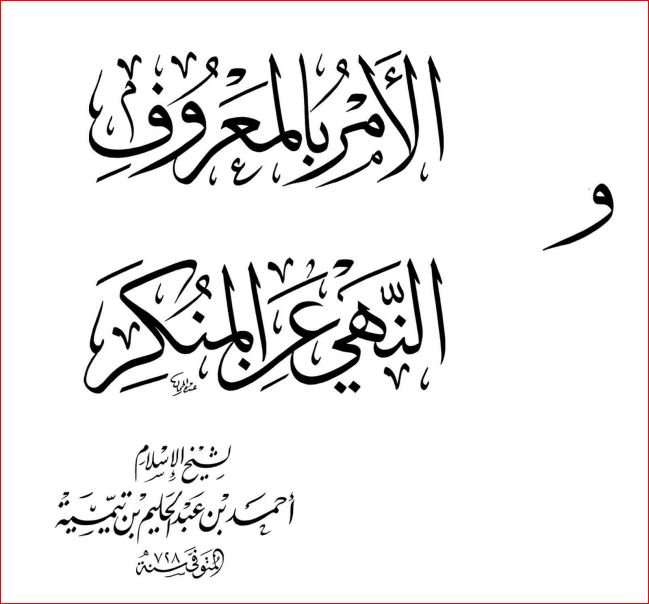 الأَمْرُ بِالمَعْرُوفِ
و
النَّهْيُ عَنِ المُنْكَرِ
لِشَيْخِ الإِسْلَامِ
أَحْمَد بْن عَبْد الحَلِيم بْن تَيْمِيَّة
المُتَوَفَّى سَنَة ٧٢٨ هـ